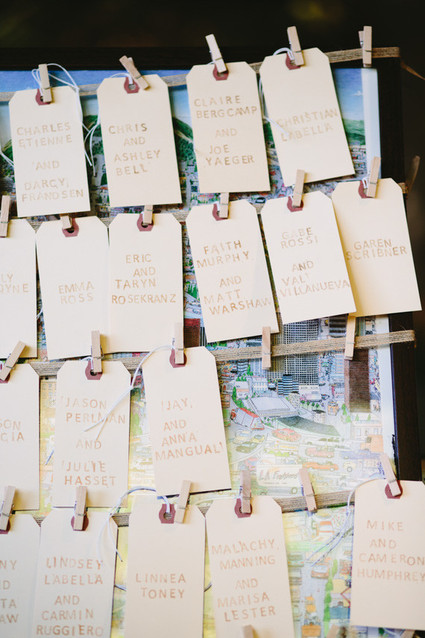 CHARLES
ETIENNE
AND
DARCY
FRANDSEN
CHRIS
AND
ASHLEY
BELL
CLAIRE
BERGCAMP
AND
JOE
YAEGER
CHRISTIAN
LABELLA
EMMA
ROSS
ERIC
AND
TARYN
ROSEKRANZ
FAITH
MURPHY
AND
MATT
WARSHAW
GABE
ROSSI
AND
VAL
VILLANUEVA
GAREN
SCRIBNER
JASON
PERLMAN
AND
JULIE
HASSET
JAY
AND
ANNA
MANGUAL
LINDSEY
LABELLA
AND
CARMIN
RUGGIERO
LINNEA
TONEY
MALACHY
MANNING
AND
MARISA
LESTER
MIKE
AND
CAMERON
HUMPHREY